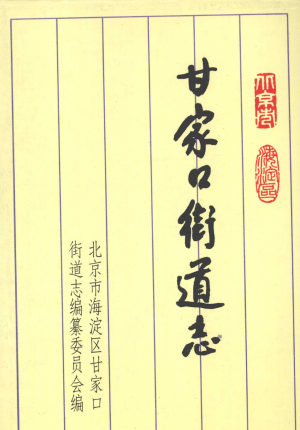 北京市
海淀区
甘家口街道志
北京市海淀区甘家口
街道志编纂委员会编